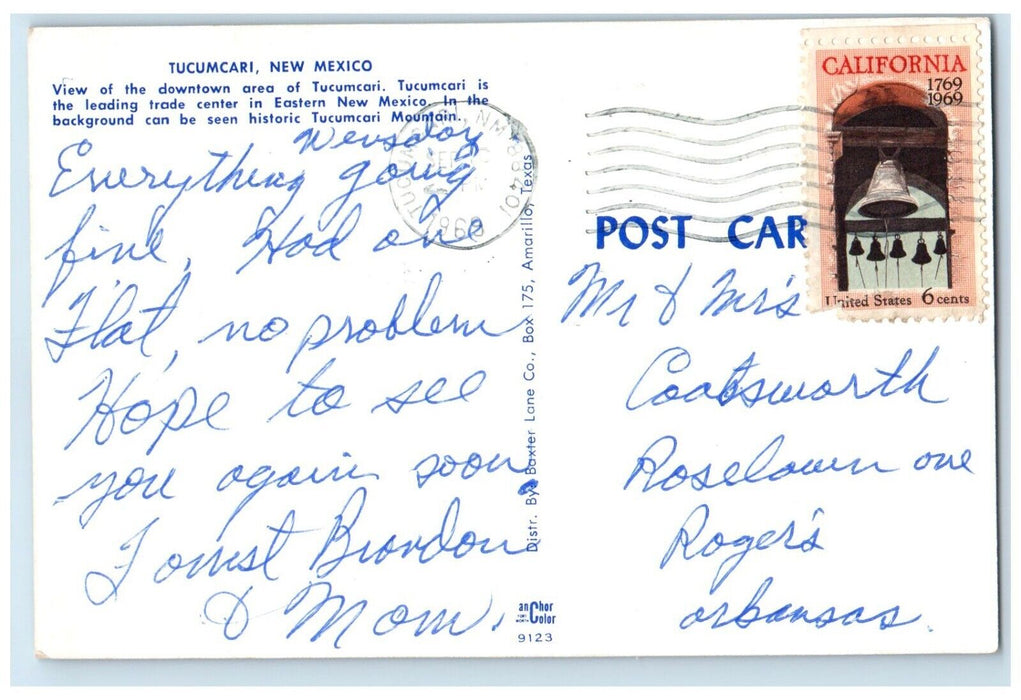 TUCUMCARI, NEW MEXICO
View of the downtown area of Tucumcari. Tucumcari is
the leading trade center in Eastern New Mexico. In the
background can be seen historic Tucumcari Mountain.
Wensday
Everything going
fine, Had one
Flat, no problem
Hope to see
you again soon
Forrest Brandon
& Mom.
Distr. By Baxter Lane Co., Box 175, Amarillo, Texas
anChor
Color
9123
TUCUMCARI NM 88401
SEP
PM
1969
CALIFORNIA
1769
1969
United States 6 cents
POST CAR
Mr & Mr's
Coatsworth
Roselawn one
Roger's
arkansas.